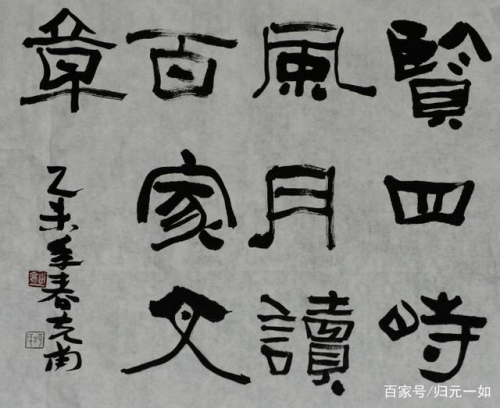 覽四時
風月讀
百家文
章
乙未年春克南
百家号/归元一如